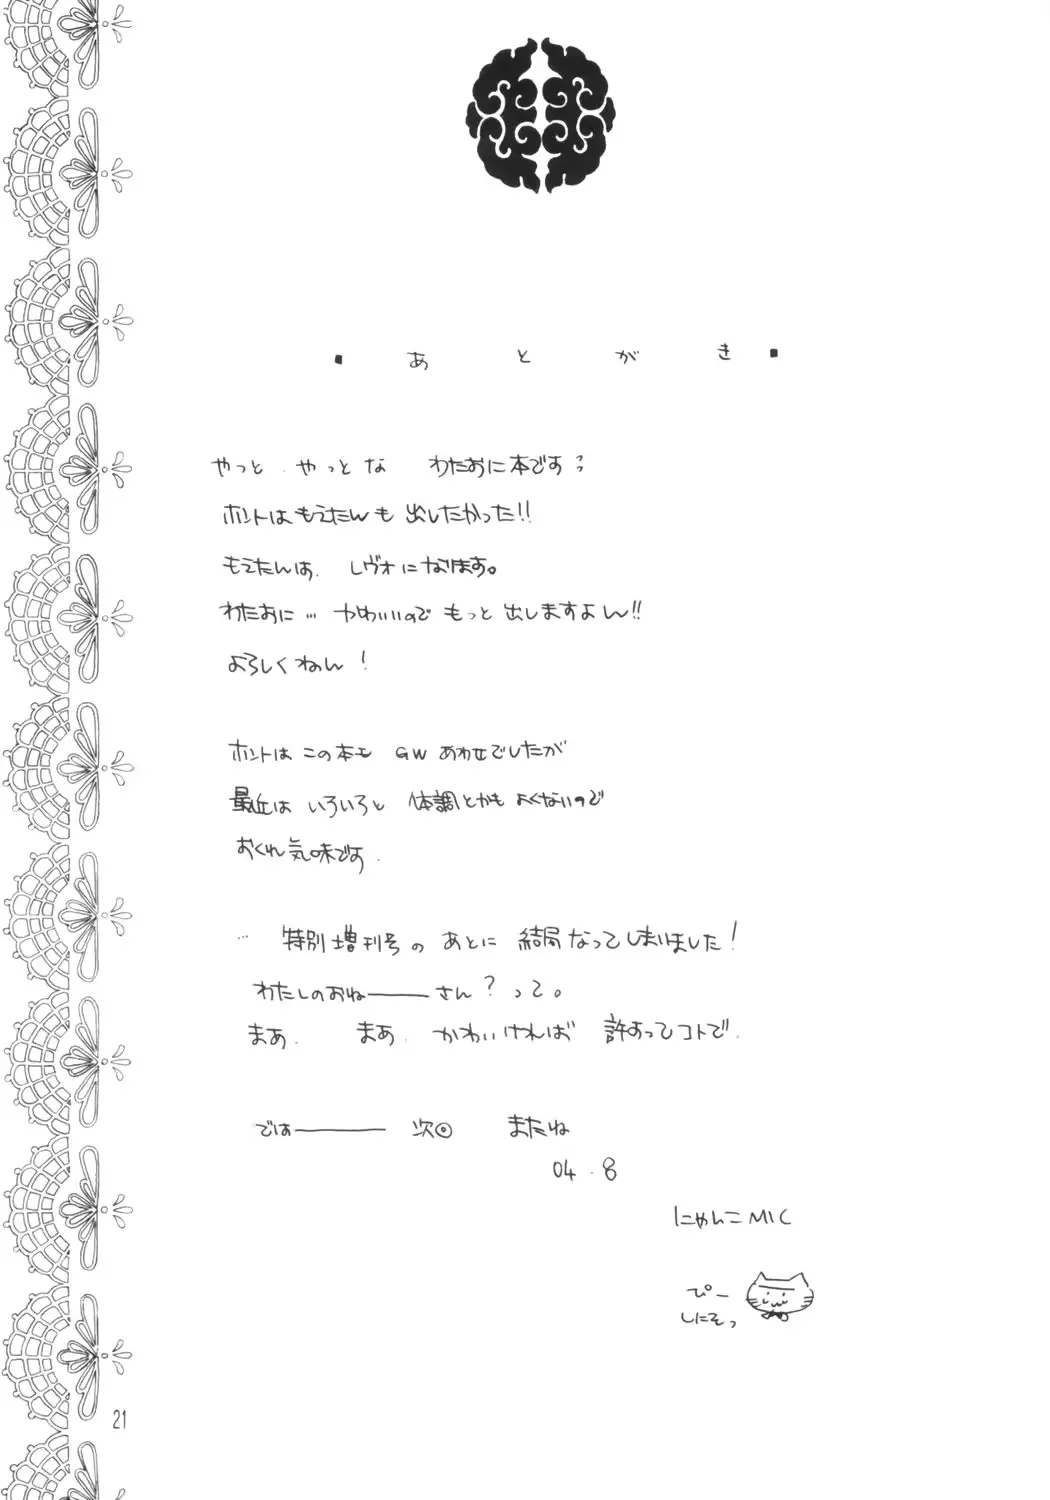 ■ あとがき ■
やっと やっとな わたおに本です
ホントはもえたんも出したかった!!
もえたんは、レヴォになります。
わたおに… かわいいので もっと出しますよん!!
よろしくねん!
ホントは この本も GWあわせでしたが
最近は いろいろと 体調とかも よくないので
おくれ気味です.
… 特別増刊号の あとに 結局なってしまいました!
わたしのおねーーさん?って。
まあ. まあ. かわいければ 許すってコトで.
ではーー 次◎ またね
04.8
にゃんこMIC
ぴー
しにそっ
21